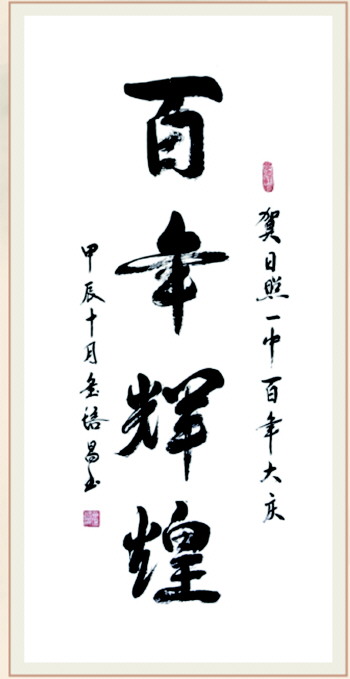 贺日照一中百年大庆
百年辉煌
甲辰十月
培昌书